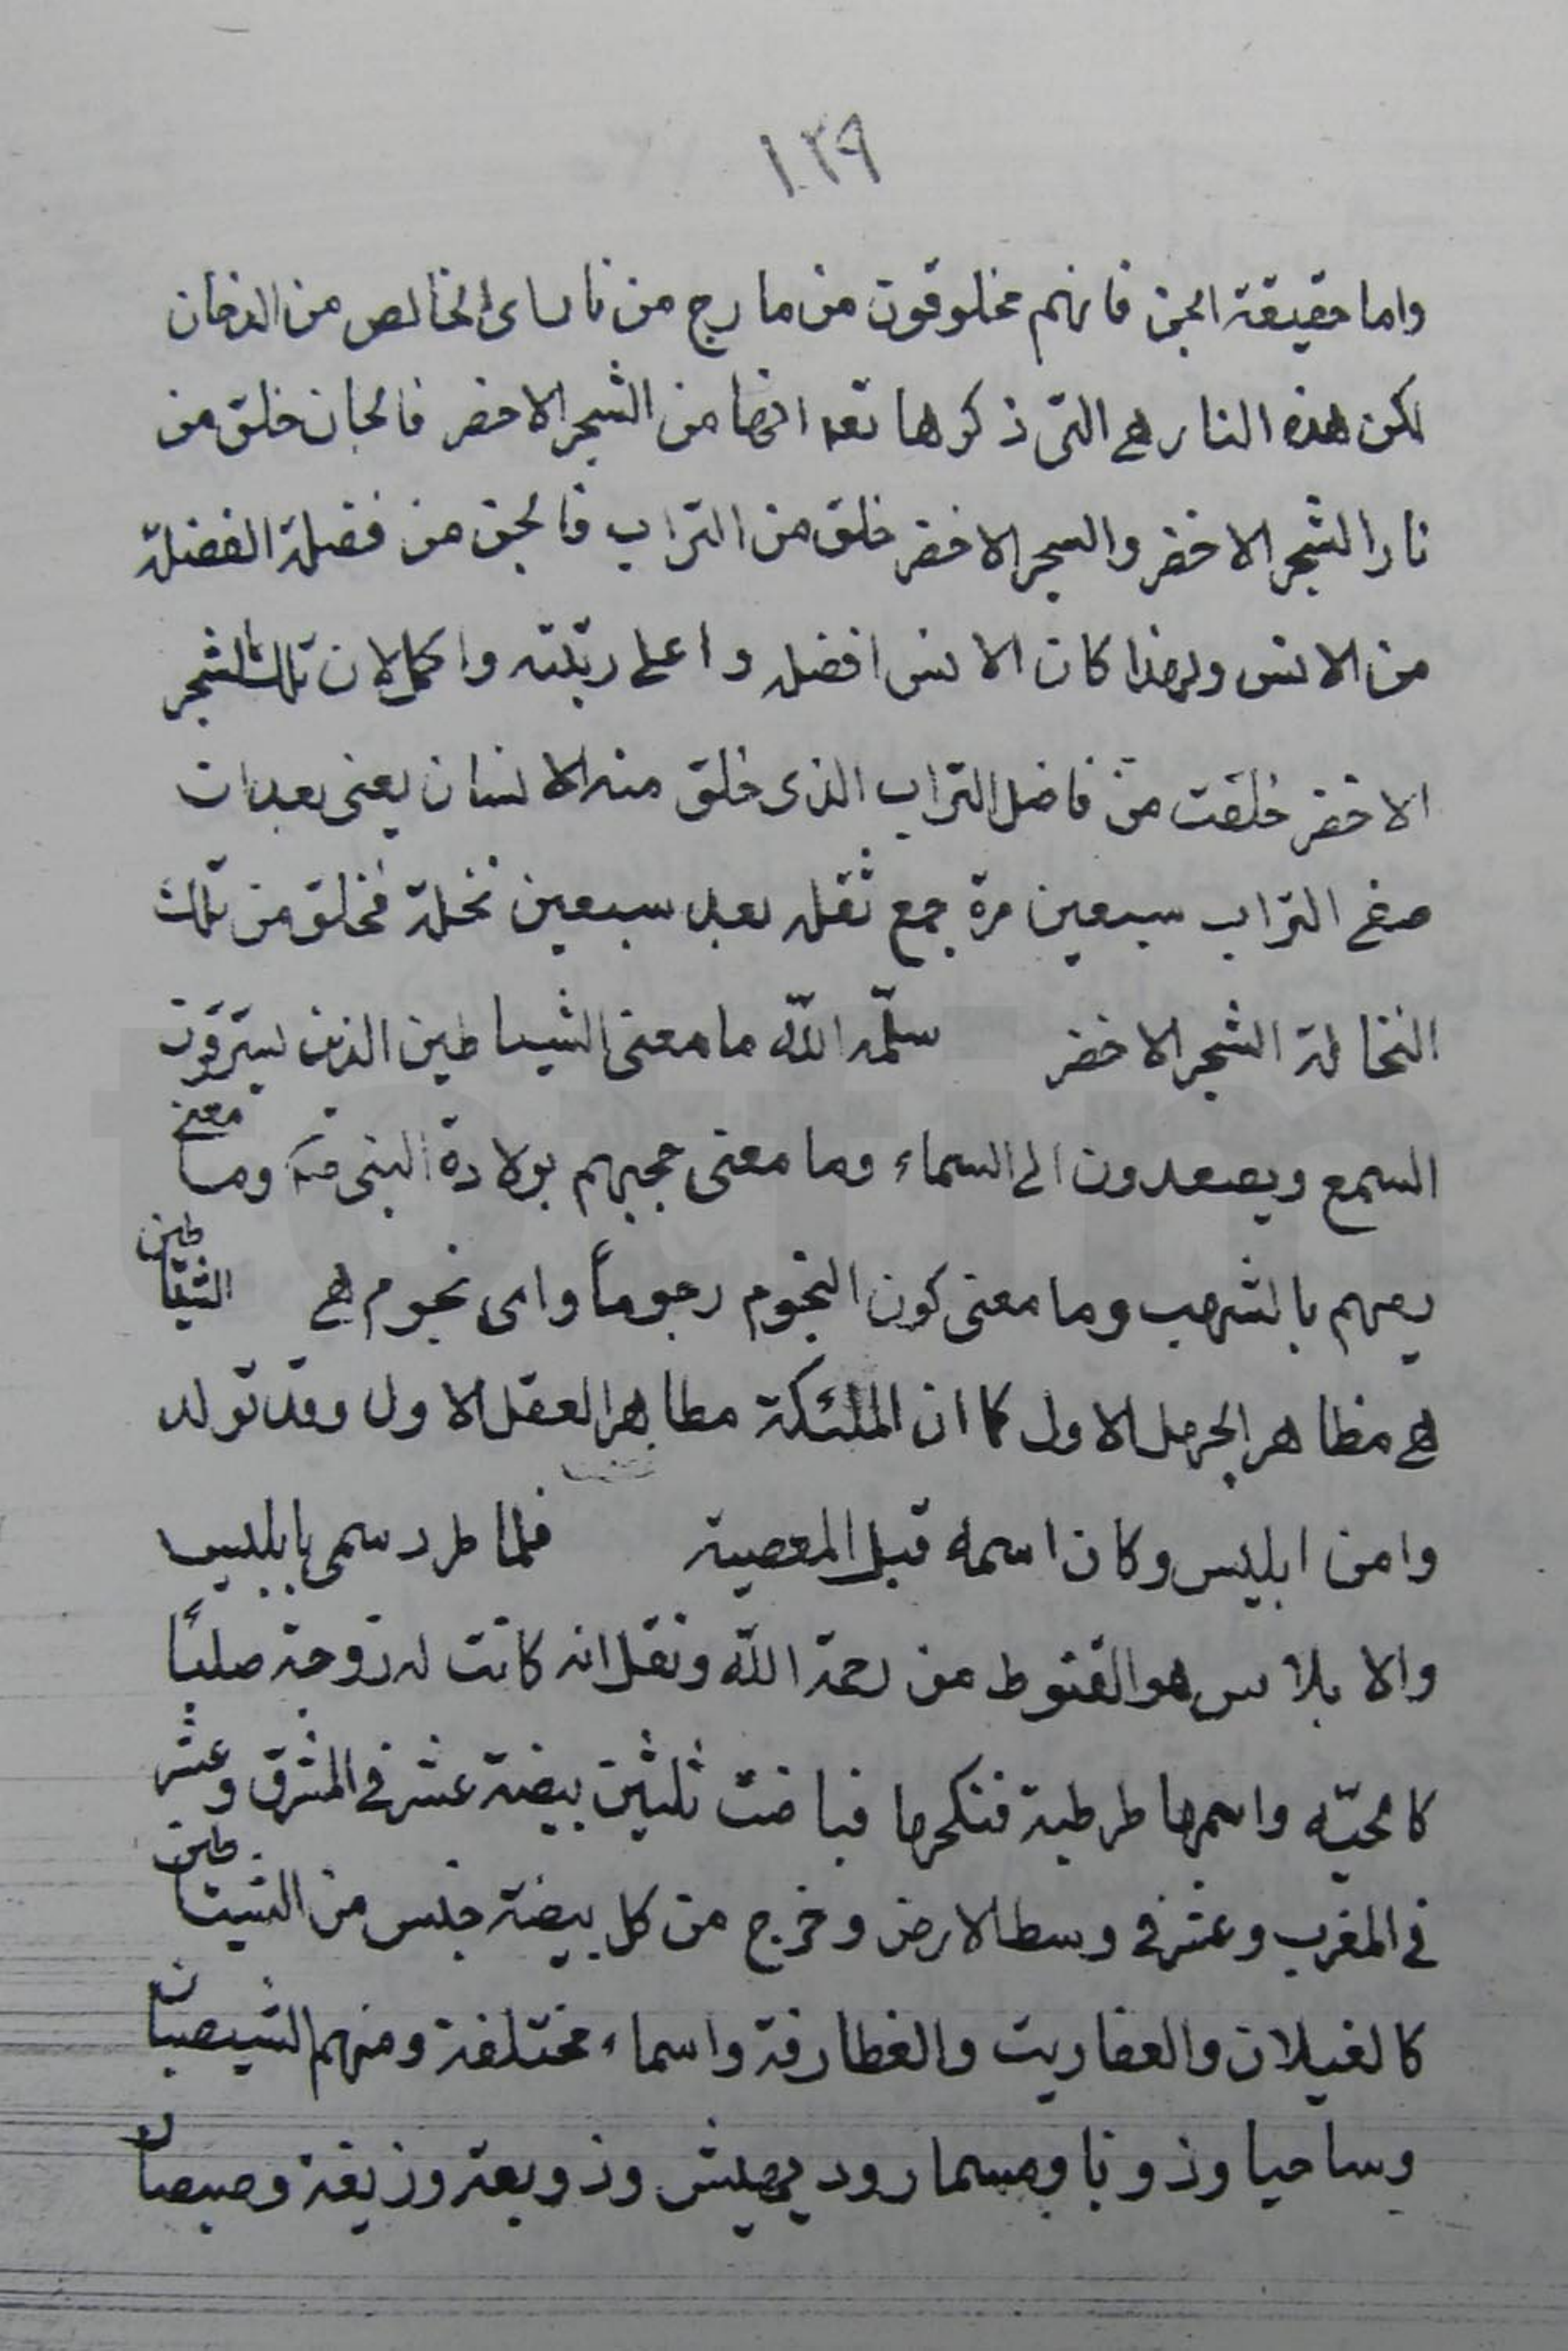 ١٢٩
واما حقيقة الجن فانهم مخلوقون من مارج من نار اى الخالص من الدخان
لكن هذه النار هى التى ذكرها تعه انها من الشجر الاخضر فالجان خلق من
نار الشجر الاخضر والسجر الاخضر خلق من التراب فالجن من فضلة الفضلة
من الانس ولهذا كان الانس افضل واعلى رتبته واكمل لان تلك الشجر
الاخضر خلقت من فاضل التراب الذى خلق منه الانسان يعنى بعد ان
صفى التراب سبعين مرة جمع ثقله بعد سبعين نخلة فخلق من تلك
النخالة الشجر الاخضر سلمه الله ما معنى الشياطين الذين يسترقون
السمع ويصعدون الى السماء وما معنى حجبهم بولادة النبى وما معنى
بالشهب وما معنى كون النجوم رجوماً واى نجوم هى الشياطين
هى مظاهر الجهل الاول كما ان الملئكة مظاهر العقل الاول وقد تولد
وامن ابليس وكان اسمه قبل المعصية فلما طرد سمى بابليس
والابلاس هو القنوط من رحمة الله ونقل انه كانت له زوجة
كالحيّة واسمها طرطبة فنكحها فباضت ثلثين بيضة عشر فى المشرق وعشر
فى المغرب وعشر فى وسط الارض وخرج من كل بيضة جنس من الشياطين
كالغيلان والعفاريت والغطارفة واسماء مختلفة ومنهم الشيصبان
وساحيا وذونا ومسمار ود وزوبعة